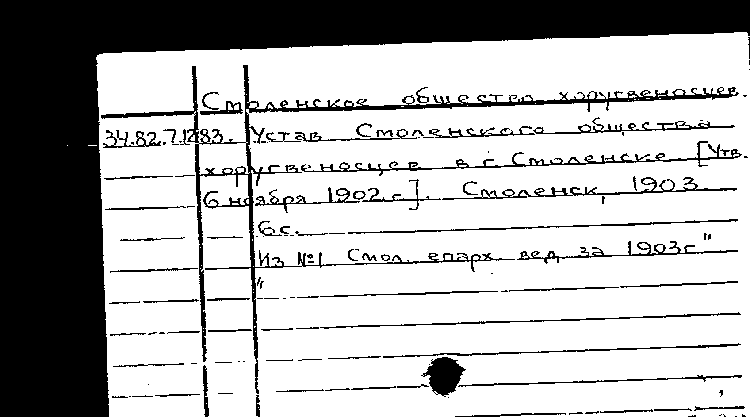 Смоленское общество хоругвеносцев.
34.82.7.1283. Устав Смоленского общества
хоругвеносцев в г. Смоленске [Утв.
6 ноября 1902 г.]. Смоленск, 1903
6 с.
Из №1 Смол. епарх. вед. за 1903г"
"